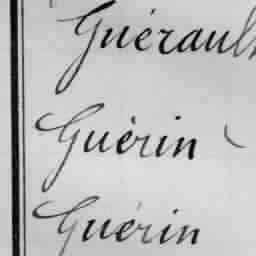 Guérault
Guérin
Guérin